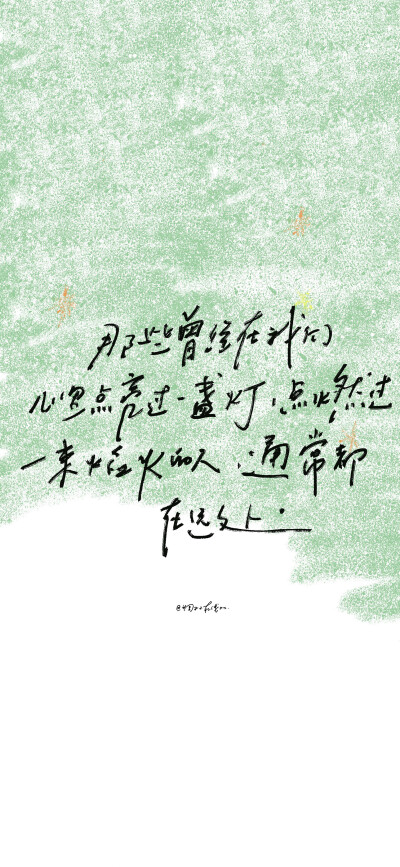 那些曾经在我们
心里点亮过一盏灯,点燃过
一束烟火的人,通常都
在远处